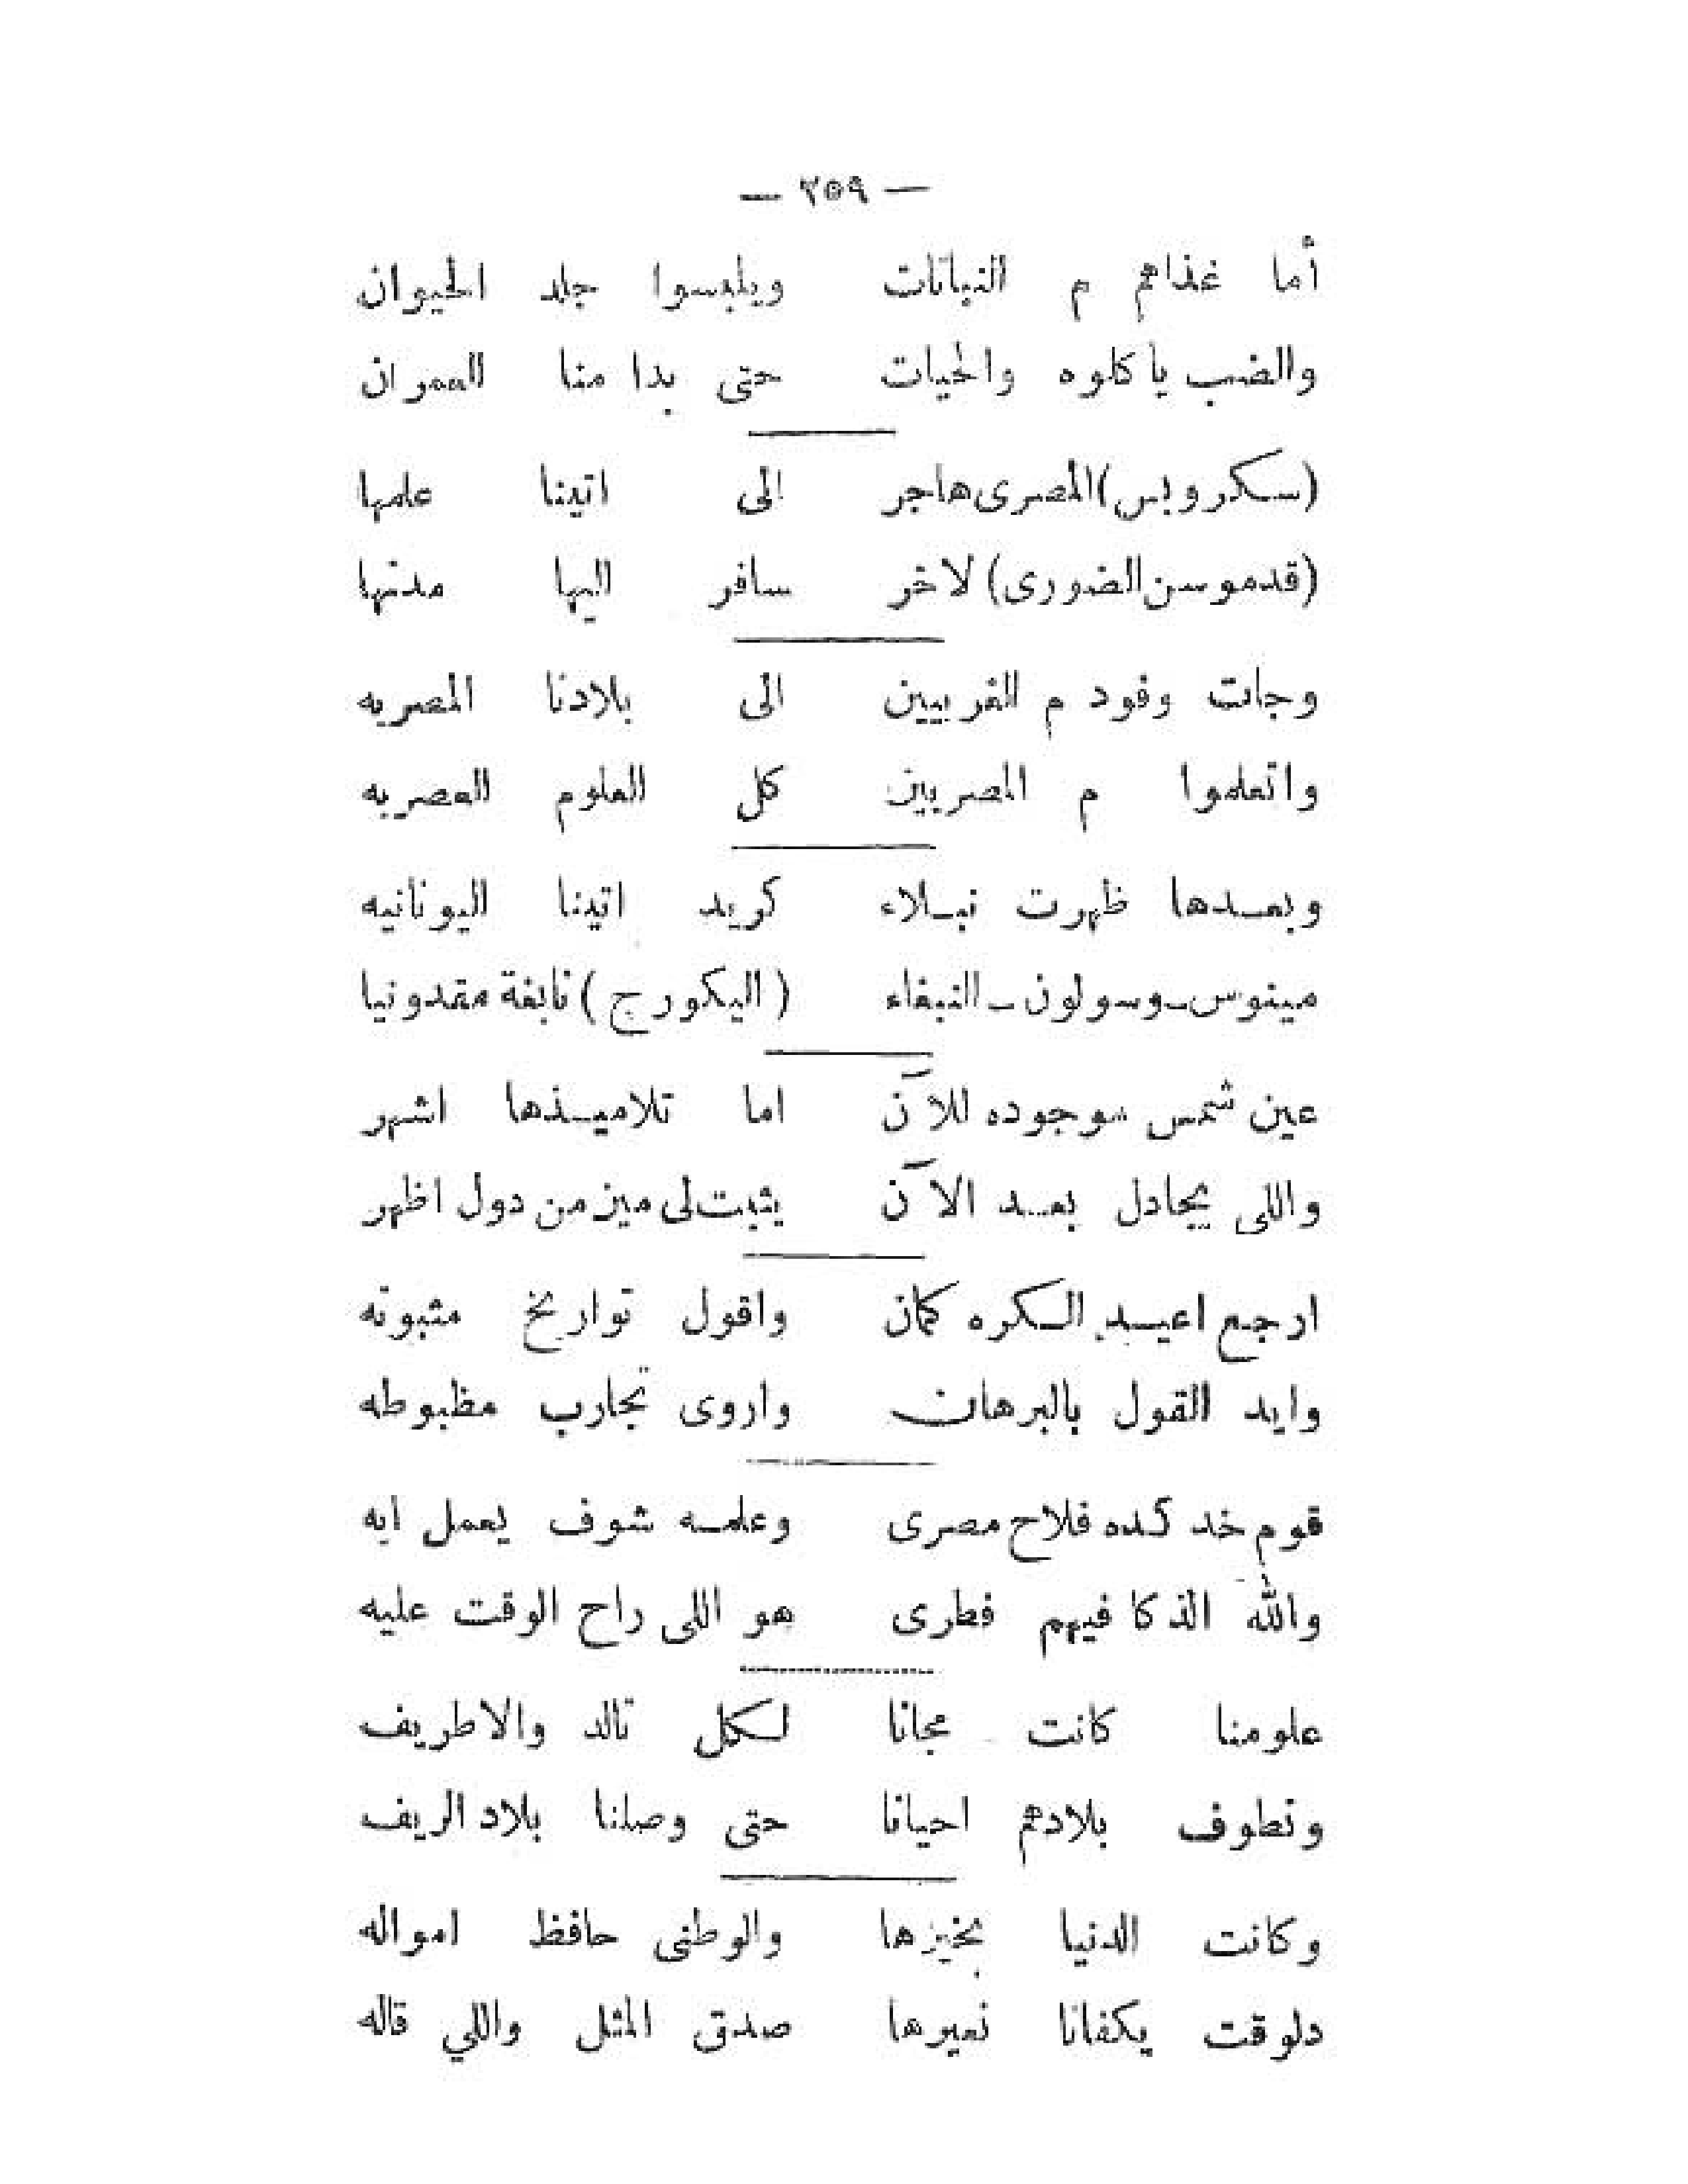 — ٢٥٩ —
أما غذاهم م النباتات ويلبسوا جلد الحيوان
والضب يا كلوه والحيات حتى بدا منا العمران
(سكروبس) المصرى هاجر الى اتينا علمها
(قدموسن الضورى) لاخر سافر اليها مدنها
وجات وفود م الغربيين الى بلادنا المصريه
واتعلموا م المصريين كل العلوم العصريه
وبعدها ظهرت نبلاء كريد اتينا اليونانيه
مينوس ـ وسولون ـ النبغاء (اليكورج) نابغة مقدونيا
عين شمس موجوده للآن اما تلاميذها اشهر
واللى يجادل بعد الآن يثبت لى مين من دول اظهر
ارجع اعيد الكره كمان واقول تواريخ مثبوته
وايد القول بالبرهان واروى تجارب مظبوطه
قوم خد كده فلاح مصرى وعلمه شوف يعمل ايه
والله الذكا فيهم فطرى هو اللى راح الوقت عليه
علومنا كانت مجانا لكل تالد والاطريف
ونطوف بلادهم احيانا حتى وصلنا بلاد الريف
وكانت الدنيا بخيرها والوطنى حافظ امواله
دلوقت يكفانا نعيرها صدق المثل واللي قاله